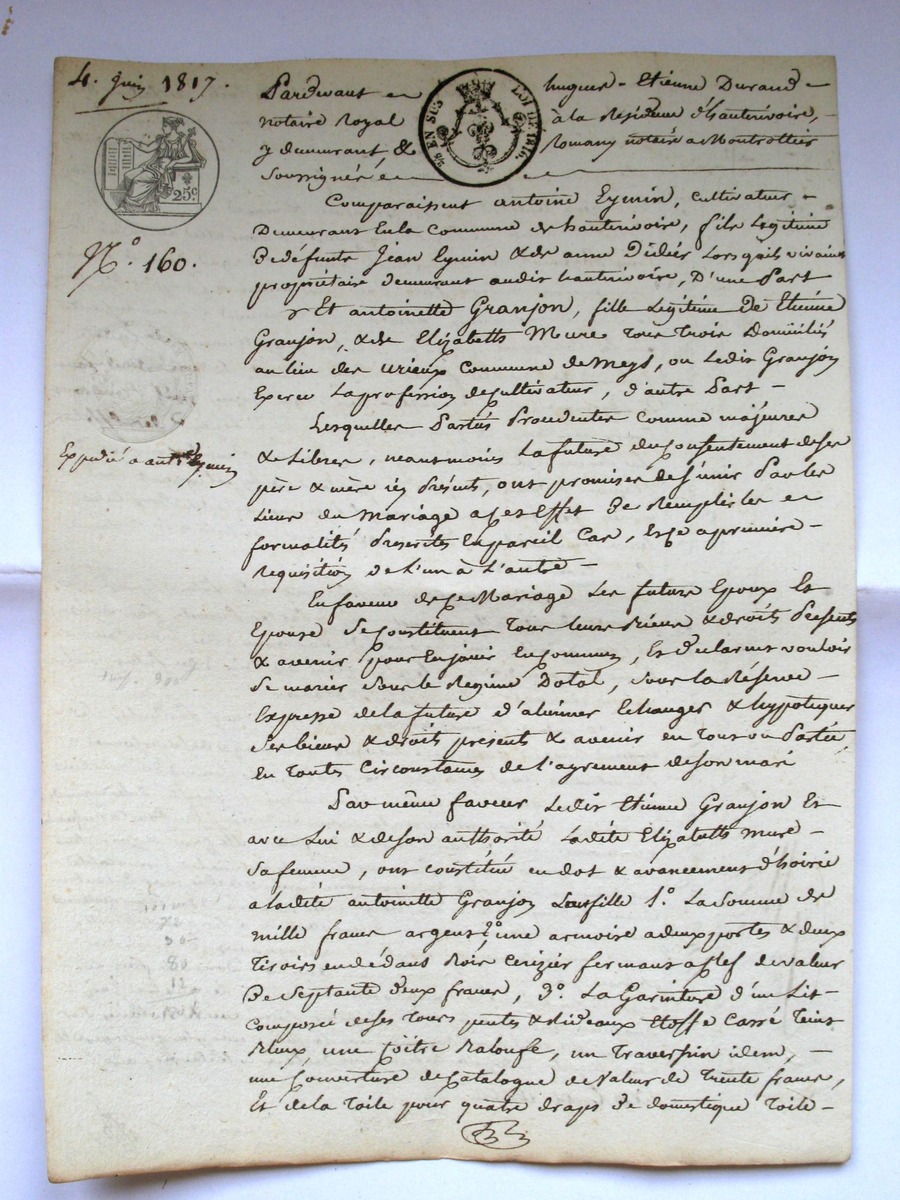 4. juin 1817.
25c
N.º 160.
Expédié a ant.ne Eymin
Pardevant Hugues-Etienne Durand
EN SUS LOI DE 1816.
notaire Royal à la Résidence d'hauterivoire,
y demeurant, & Romany notaire a Montrottier
soussignés
Comparaissent antoine Eymin, cultivateur
Demeurant En la Commune de hauterivoire, fils Legitime
De défunts Jean Eymin & de anne Didier Lorsquils vivaient
propriétaire demeurant audit hauterivoire, D'une Part
Et antoinette Granjon, fille Legitime De Etienne
Granjon, & de Elizabeth Mure Tous trois Domiciliés
au lieu des urieux Commune de Meys, ou Ledit Granjon
Exerce La profession de Cultivateur, d'autre Part
Lesquelles Parties Procedentes comme majeures
& Libres, neantmoins La future du Consentement de ses
père & mère icy Présents, ont promises de S'unir Par les
Liens du Mariage a Cet Effet De Remplir les
formalités Prescrites En pareil Cas, Es Ce a première
requisition de L'un à L'autre
En faveur de Ce Mariage Les futurs Epoux Et
Epouse Se Constituent Tous leurs Biens & droits Présents
& avenir pour En jouir En Commun, Et declarent vouloir
Se marier Sous le Regime Dotal, sous la Réserve
Expresse de la future d'aliéner Echanger & hypotequer
Ses biens & droits présents & avenir en Tout ou Partie,
En Toutes Circonstances de L'agrement de Son mari
Par même faveur Ledit Etienne Granjon Et
avec Lui & de son authorité Ladite Elizabeth Mure
Sa femme, ont constitué en dot & avancement d'hoirie
a ladite antoinette Granjon Leur fille 1.º La Somme de
mille francs argent 2.º une armoire a deux portes & deux
Tiroirs en dedans Bois Cerizier fermant a Clef de valeur
De Septante deux francs, 3.º La Garniture d'un Lit
Composée de ses Tours pentes & Rideaux Etoffe Carré Teint
Bleux, une Coëtre Baloufe, un Traversin idem,
une Couverture de Catalogne de Valeur de Trente francs,
Et de la Toile pour quatre draps De domestique Toile